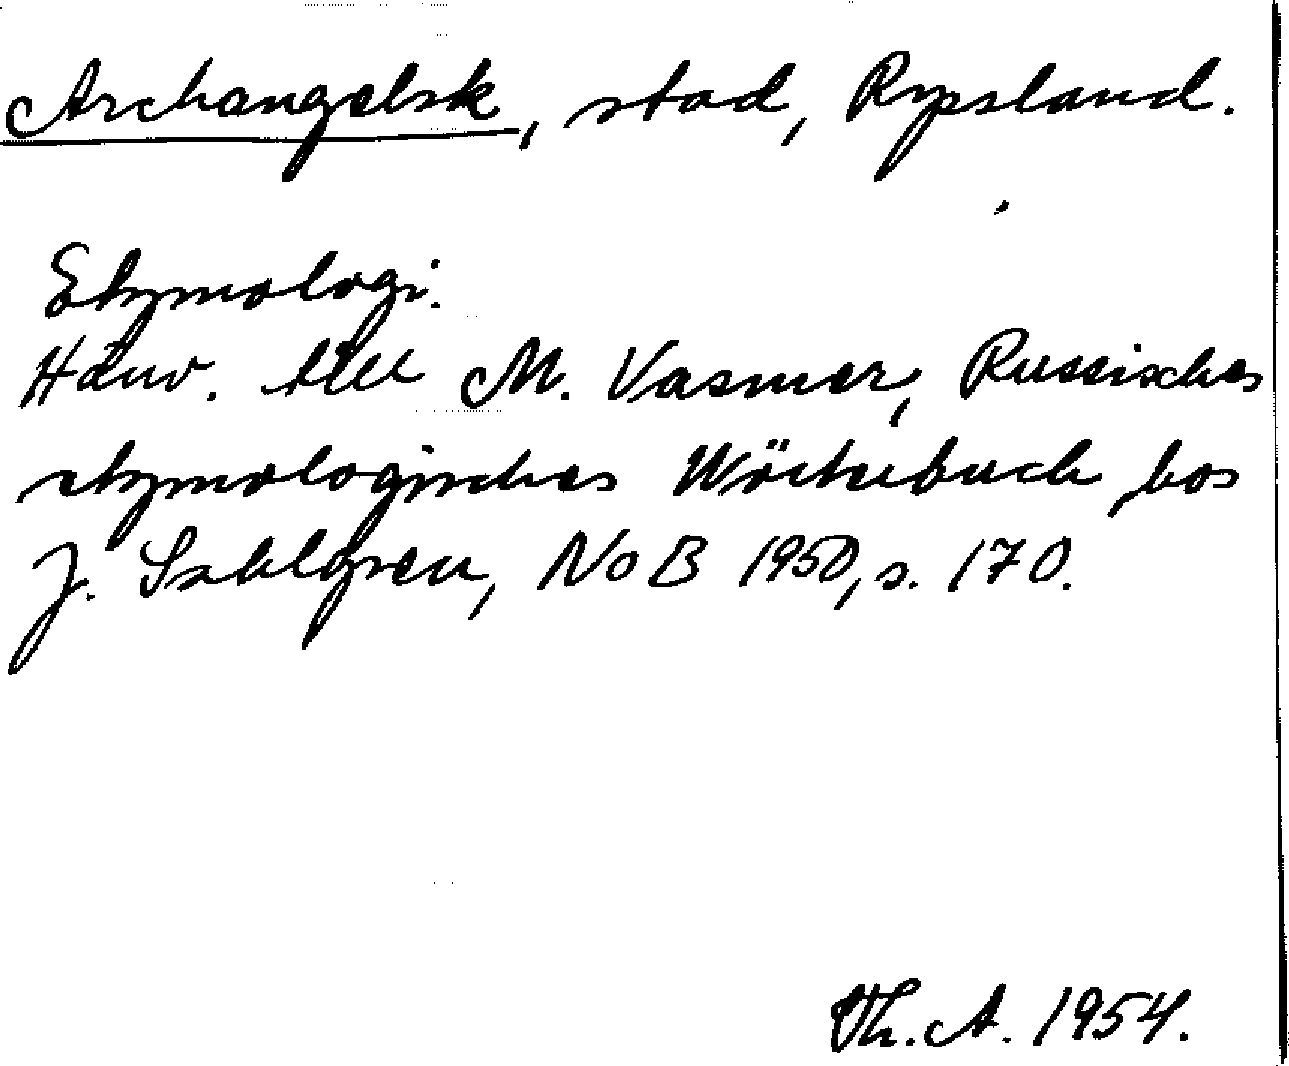 Archangelsk, stad, Ryssland.
Etymologi.
Hänv. till M. Vasmer, Russisches
etymologisches Wörterbuch hos
J. Sahlgren, NoB 1950, s. 170.
Th. A. 1954.